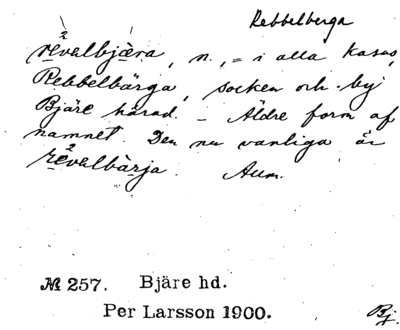 Rebbelberga
rèvalbjæra, n., = i alla kasus,
Rebbelbärga, socken och by
Bjäre härad. – Äldre form af
namnet. Den nu vanliga är
rèvalbàrja. Aum.
№ 257. Bjäre hd.
Per Larsson 1900.
Bj.